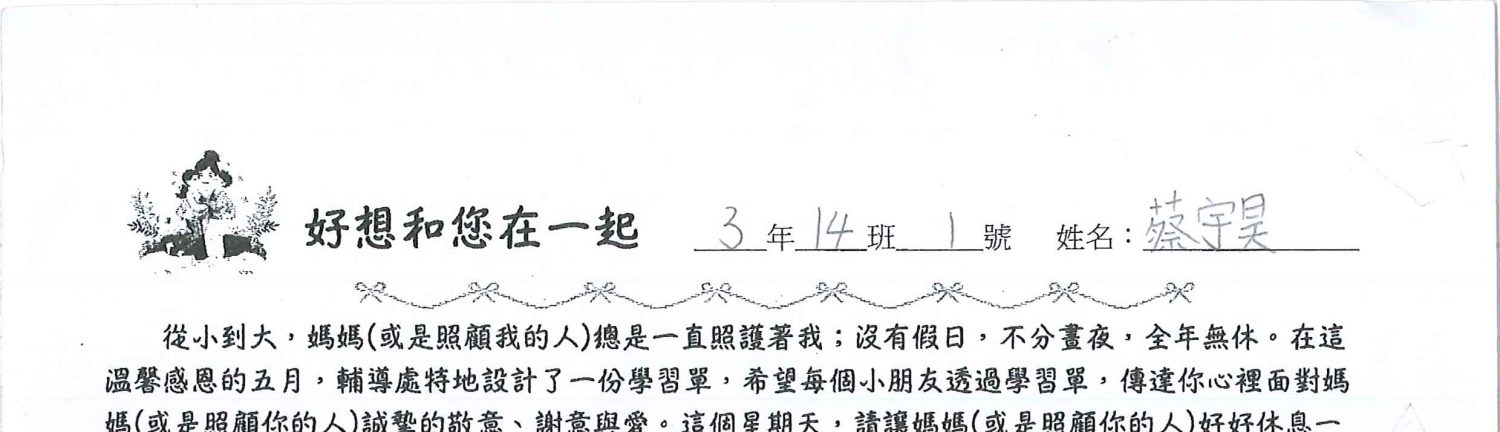 好想和您在一起 3年14班1號 姓名：蔡宇昊
從小到大，媽媽(或是照顧我的人)總是一直照護著我；沒有假日，不分晝夜，全年無休。在這
溫馨感恩的五月，輔導處特地設計了一份學習單，希望每個小朋友透過學習單，傳達你心裡面對媽
媽(或是照顧你的人)誠摯的敬意、謝意與愛。這個星期天，請讓媽媽(或是照顧你的人)好好休息一